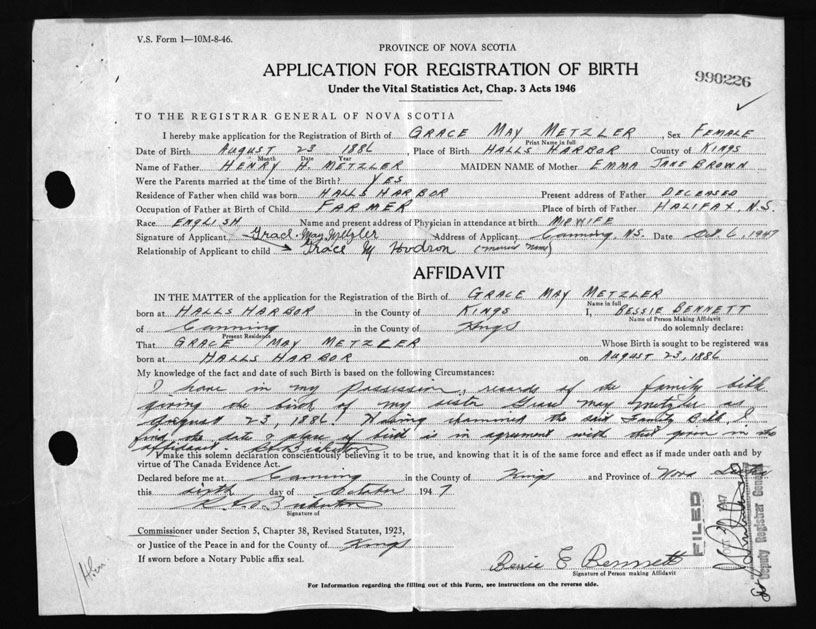 V.S. Form 1—10M-8-46.
PROVINCE OF NOVA SCOTIA
APPLICATION FOR REGISTRATION OF BIRTH
990226
Under the Vital Statistics Act, Chap. 3 Acts 1946
TO THE REGISTRAR GENERAL OF NOVA SCOTIA
I hereby make application for the Registration of Birth of GRACE MAY METZLER, Sex FEMALE
Print Name in full
Date of Birth AUGUST 23 1886, Place of Birth HALLS HARBOR County of KINGS
Month Date Year
Name of Father HENRY H. METZLER MAIDEN NAME of Mother EMMA JANE BROWN
Were the Parents married at the time of the Birth? YES
Residence of Father when child was born HALLS HARBOR Present address of Father DECEASED
Occupation of Father at Birth of Child FARMER Place of birth of Father HALIFAX, N.S.
Race ENGLISH Name and present address of Physician in attendance at birth MIDWIFE
Signature of Applicant Grace May Metzler Address of Applicant Canning, N.S. Date Oct. 6, 1947
Relationship of Applicant to child Grace M (married name)
AFFIDAVIT
IN THE MATTER of the application for the Registration of the Birth of GRACE MAY METZLER
Name in full
born at HALLS HARBOR in the County of KINGS I, BESSIE BENNETT
Name of Person Making Affidavit
of Canning in the County of Kings do solemnly declare:
Present Residence
That GRACE MAY METZLER Whose Birth is sought to be registered was
born at HALLS HARBOR on AUGUST 23, 1886
My knowledge of the fact and date of such Birth is based on the following Circumstances:
I have in my Possession, records of the family bible
giving the birth of my sister Grace May Metzler as
August 23, 1886. Having examined the said Family Bible, I
find the date & place of birth is in agrement with that given in the
affidavit.
I make this solemn declaration conscientiously believing it to be true, and knowing that it is of the same force and effect as if made under oath and by
virtue of The Canada Evidence Act.
Declared before me at Canning in the County of Kings and Province of Nova Scotia
this sixth day of October 1947
Signature of
Commissioner under Section 5, Chapter 38, Revised Statutes, 1923,
or Justice of the Peace in and for the County of Kings
If sworn before a Notary Public affix seal.
Bessie E Bennett
Signature of Person making Affidavit
FILED
Deputy Registrar General
For Information regarding the filling out of this Form, see instructions on the reverse side.